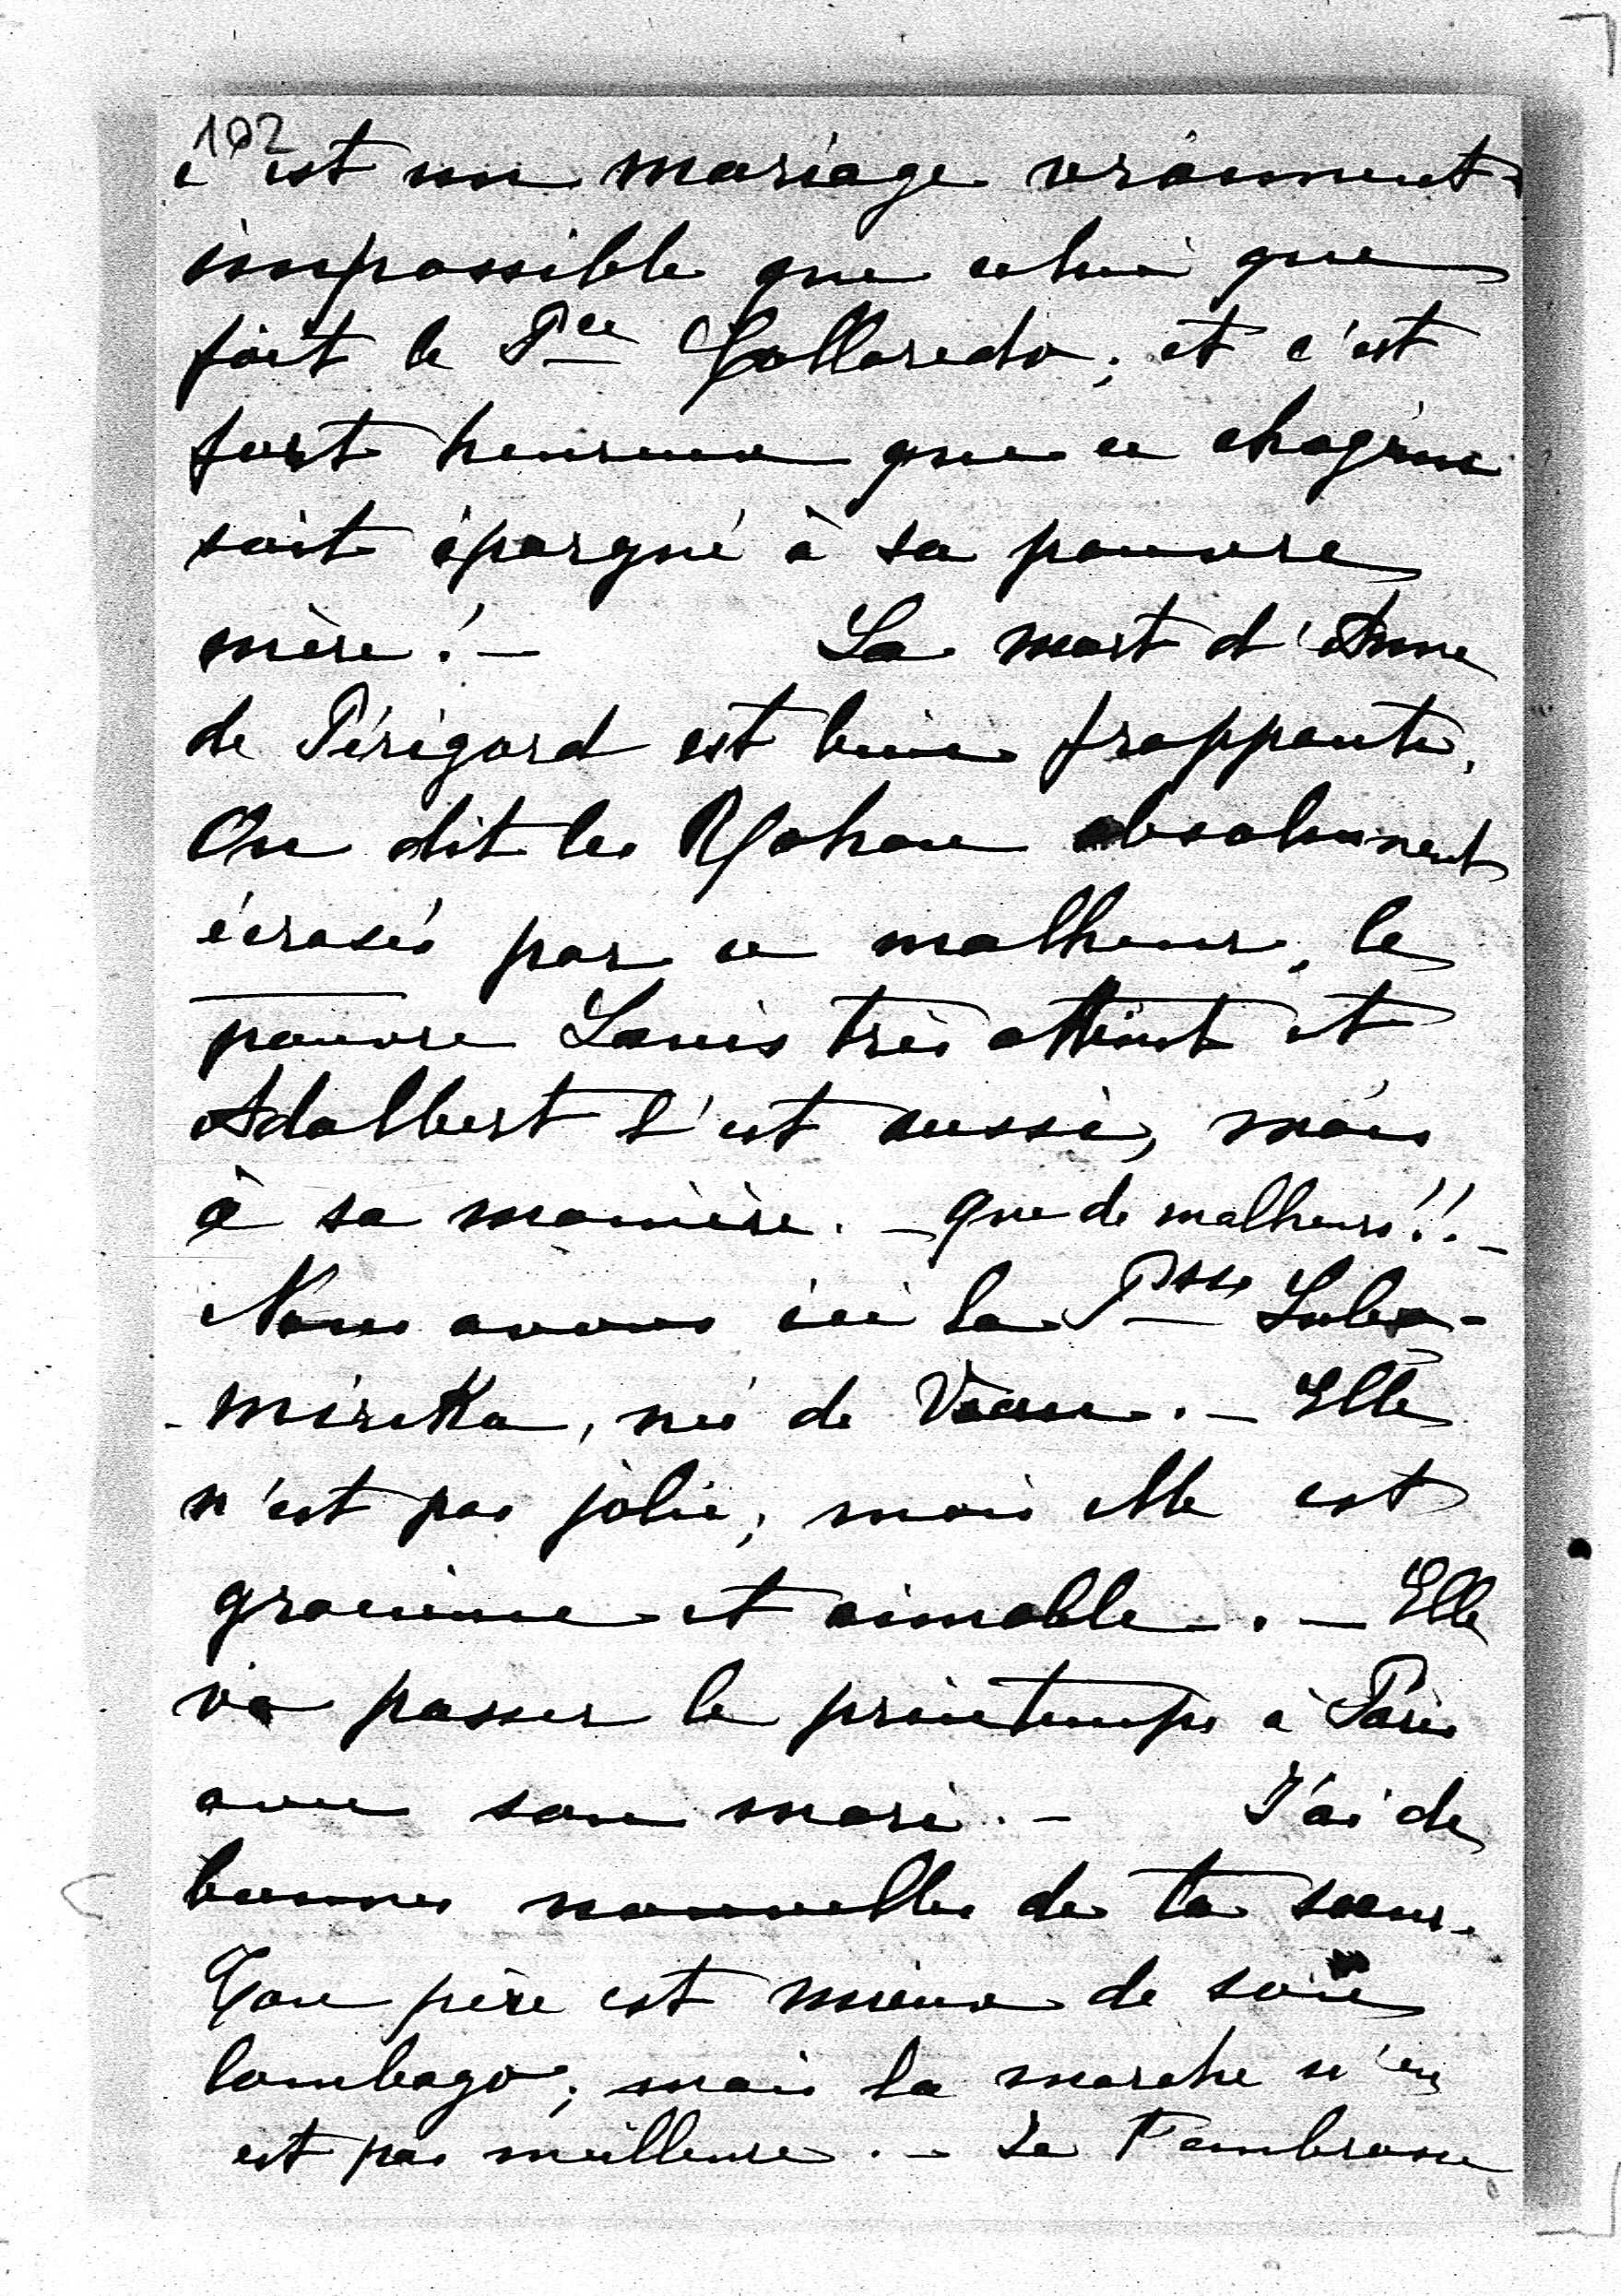 102
c'est un mariage vraiment
impossible que celui que
fait le Pce Colloredo; et c'est
fort heureux que ce chagrin
soit épargné à sa pauvre
mère! — La mort d'Anne
de Périgord est bien frappante.
On dit les Mohan absolument
écrasés par ce malheur, le
pauvre Louis très atteint et
Adalbert l'est aussi, mais
à sa manière. — que de malheurs!! —
Nous avons ici la Psse Lubo-
-mirska, née de Vrau. — Elle
n'est pas jolie; mais elle est
gracieuse et aimable. — Elle
va passer le printemps à Paris
avec son mari. — J'ai de
bonnes nouvelles de ta sœur.
Ton père est mieux de son
lombago; mais la marche n'en
est pas meilleure. — Le